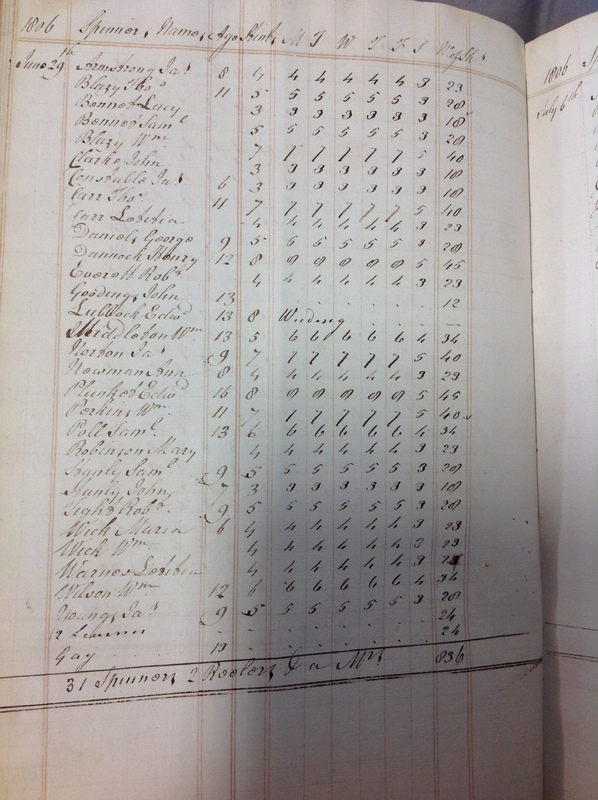 1806 Spinners Names Age Stint M T W T F S No of Sk.s
June 29th Armstrong Ja.s 8 4 4 4 4 4 4 3 23
Blazy Tho.s 11 5 5 5 5 5 5 3 28
Bonnet Lucy 3 3 3 3 3 3 3 18
Bonnet Sam.l 5 5 5 5 5 5 3 28
Blazy W.m 7 7 7 7 7 7 5 40
Clarke John 3 3 3 3 3 3 3 18
Ja.s 6 3 3 3 3 3 3 3 18
Carr Tho.s 11 7 7 7 7 7 7 5 40
Carr Letitia 4 4 4 4 4 4 3 23
Daniels George 9 5 5 5 5 5 5 3 28
Dunnock Henry 12 8 8 8 8 8 8 5 45
Everett Rob.t 4 4 4 4 4 4 3 23
Goodings John 13 12
Lubbock Edw.d 13 8 Weeding —
Middleton W.m 13 5 6 6 6 6 6 4 34
Norton Ja.s 9 7 7 7 7 7 7 5 40
Newman Ann 8 4 4 4 4 4 4 3 23
Plunket Edw.d 16 8 8 8 8 8 8 5 45
Perkins W.m 11 7 7 7 7 7 7 5 40
Poll Sam.l 13 6 6 6 6 6 6 4 34
Robinson Mary 4 4 4 4 4 4 3 23
Sam.l 9 5 5 5 5 5 5 3 28
John 7 3 3 3 3 3 3 3 18
Rob.t 9 5 5 5 5 5 5 3 28
Wick Maria 6 4 4 4 4 4 4 3 23
Wick W.m 4 4 4 4 4 4 3 23
Warnes Letitia 4 4 4 4 4 4 3 23
Wilson W.m 12 6 6 6 6 6 6 4 34
Youngs Ja.s 9 5 5 5 5 5 5 3 28
2 24
Gay 13 24
31 Spinners 2 Reelers & a 836
1806 Sp
July 6th